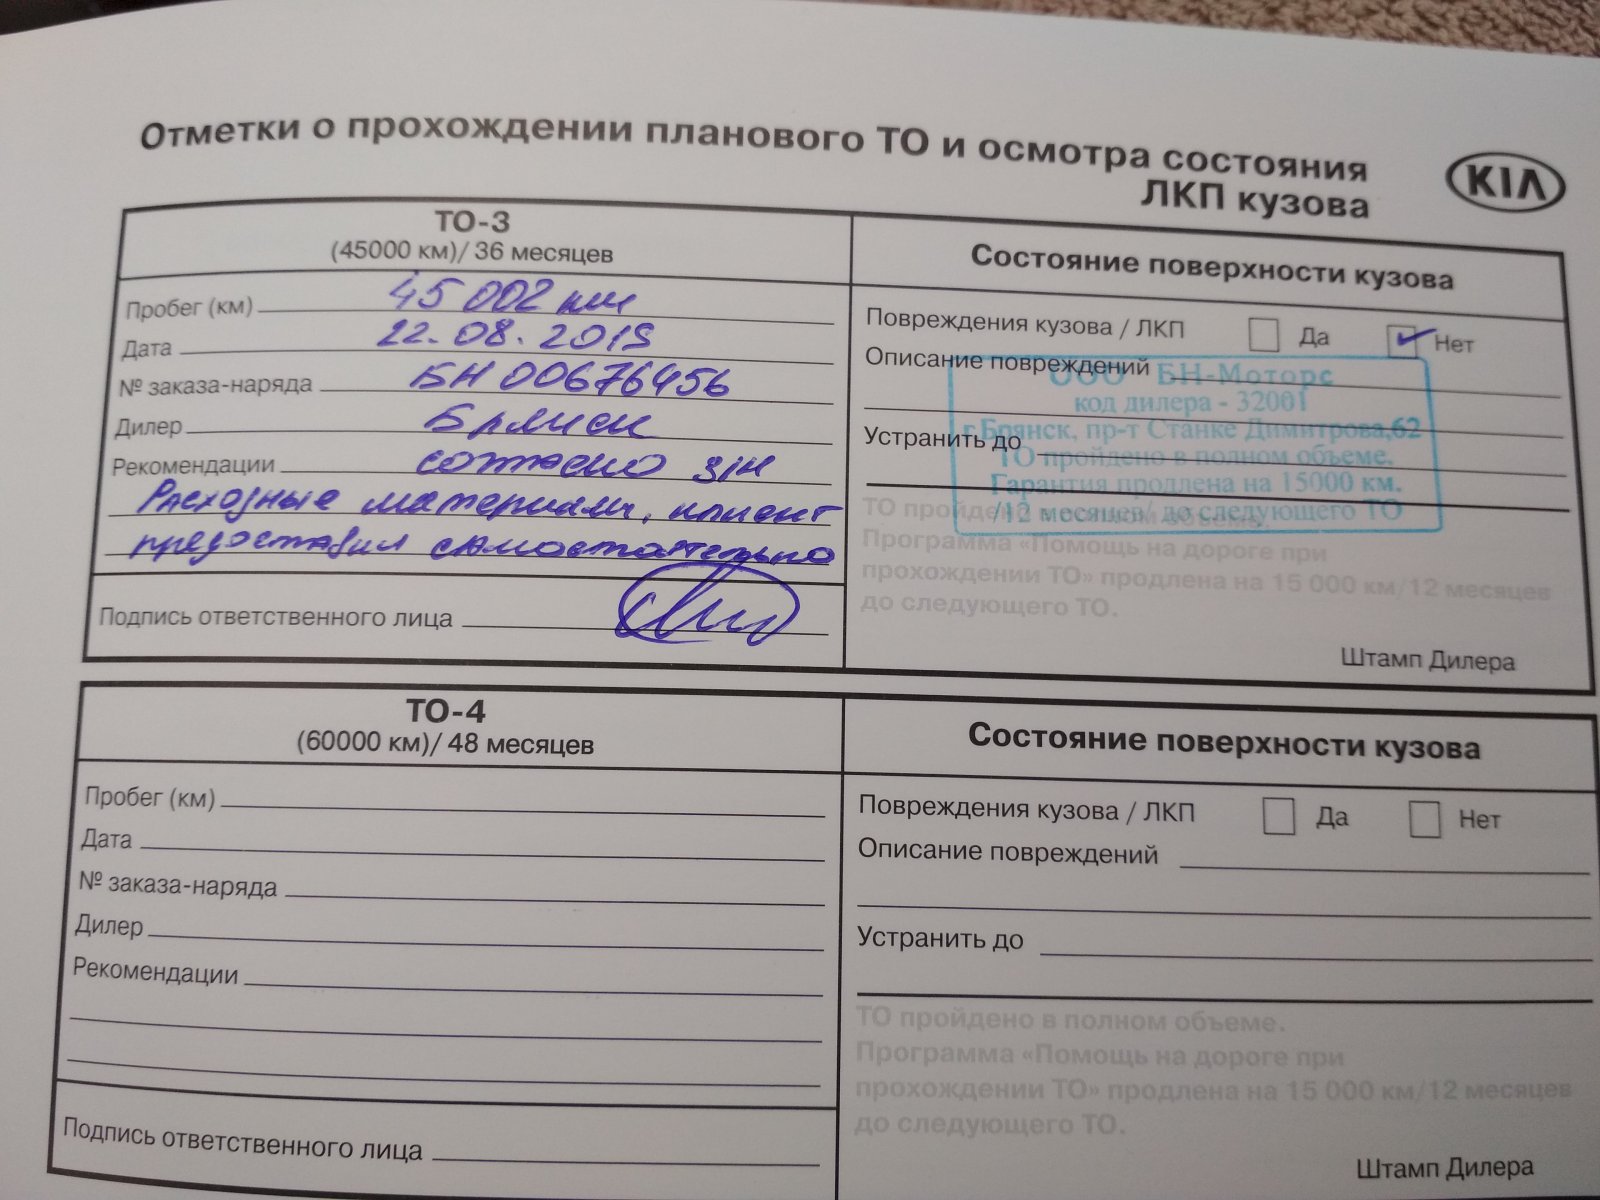 Отметки о прохождении планового ТО и осмотра состояния
ЛКП кузова
KIA
ТО-3
(45000 км)/ 36 месяцев
Пробег (км) 45 002 км
Дата 22.08.2019
№ заказа-наряда БН 00676456
Дилер Брянск
Рекомендации согласно з/н
Расходные материалы, клиент
предоставил самостоятельно
Подпись ответственного лица
Состояние поверхности кузова
Повреждения кузова / ЛКП Да Нет
Описание повреждений
Устранить до
ООО БН-Моторс
код дилера - 32001
г.Брянск, пр-т Станке Димитрова,62
ТО пройдено в полном объеме.
Гарантия продлена на 15000 км.
/12 месяцев/ до следующего ТО
ТО пройдено в полном объеме.
Программа «Помощь на дороге при
прохождении ТО» продлена на 15 000 км/12 месяцев
до следующего ТО.
Штамп Дилера
ТО-4
(60000 км)/ 48 месяцев
Пробег (км)
Дата
№ заказа-наряда
Дилер
Рекомендации
Подпись ответственного лица
Состояние поверхности кузова
Повреждения кузова / ЛКП Да Нет
Описание повреждений
Устранить до
ТО пройдено в полном объеме.
Программа «Помощь на дороге при
прохождении ТО» продлена на 15 000 км/12 месяцев
до следующего ТО.
Штамп Дилера